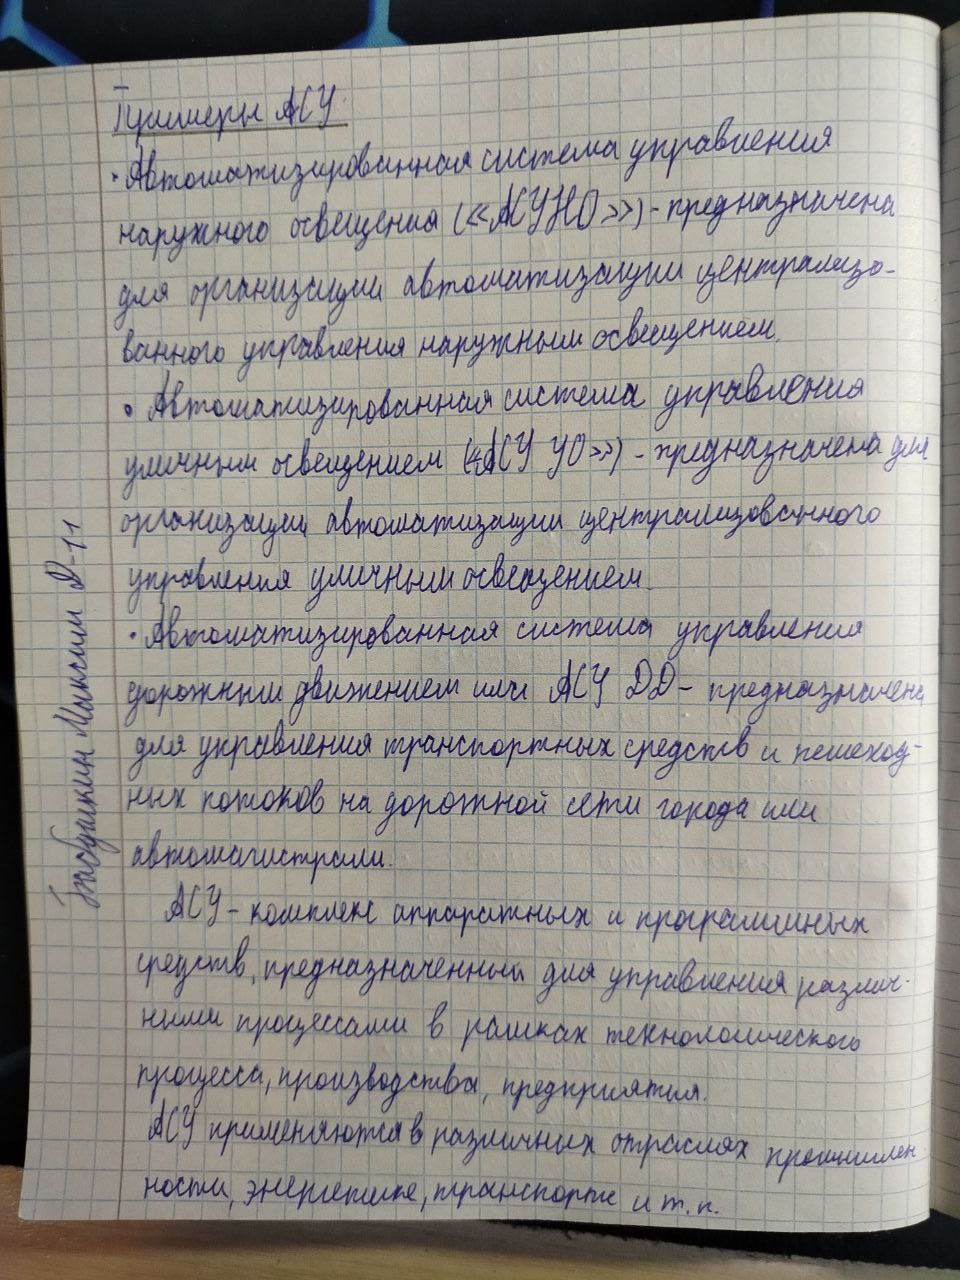 Примеры АСУ
• Автоматизированная система управления
наружного освещения («АСУНО») - предназначена
для организации автоматизации централизо-
ванного управления наружным освещением.
• Автоматизированная система управления
уличным освещением («АСУ УО») - предназначена для
организации автоматизации централизованного
управления уличным освещением.
• Автоматизированная система управления
дорожным движением или АСУ ДД - предназначена
для управления транспортных средств и пешеход-
ных потоков на дорожной сети города или
автомагистрали.
АСУ - комплекс аппаратных и программных
средств, предназначенный для управления различ-
ными процессами в рамках технологического
процесса, производства, предприятия.
АСУ применяются в различных отраслях промышлен-
ности, энергетике, транспорте и т.п.
Максим Д-11